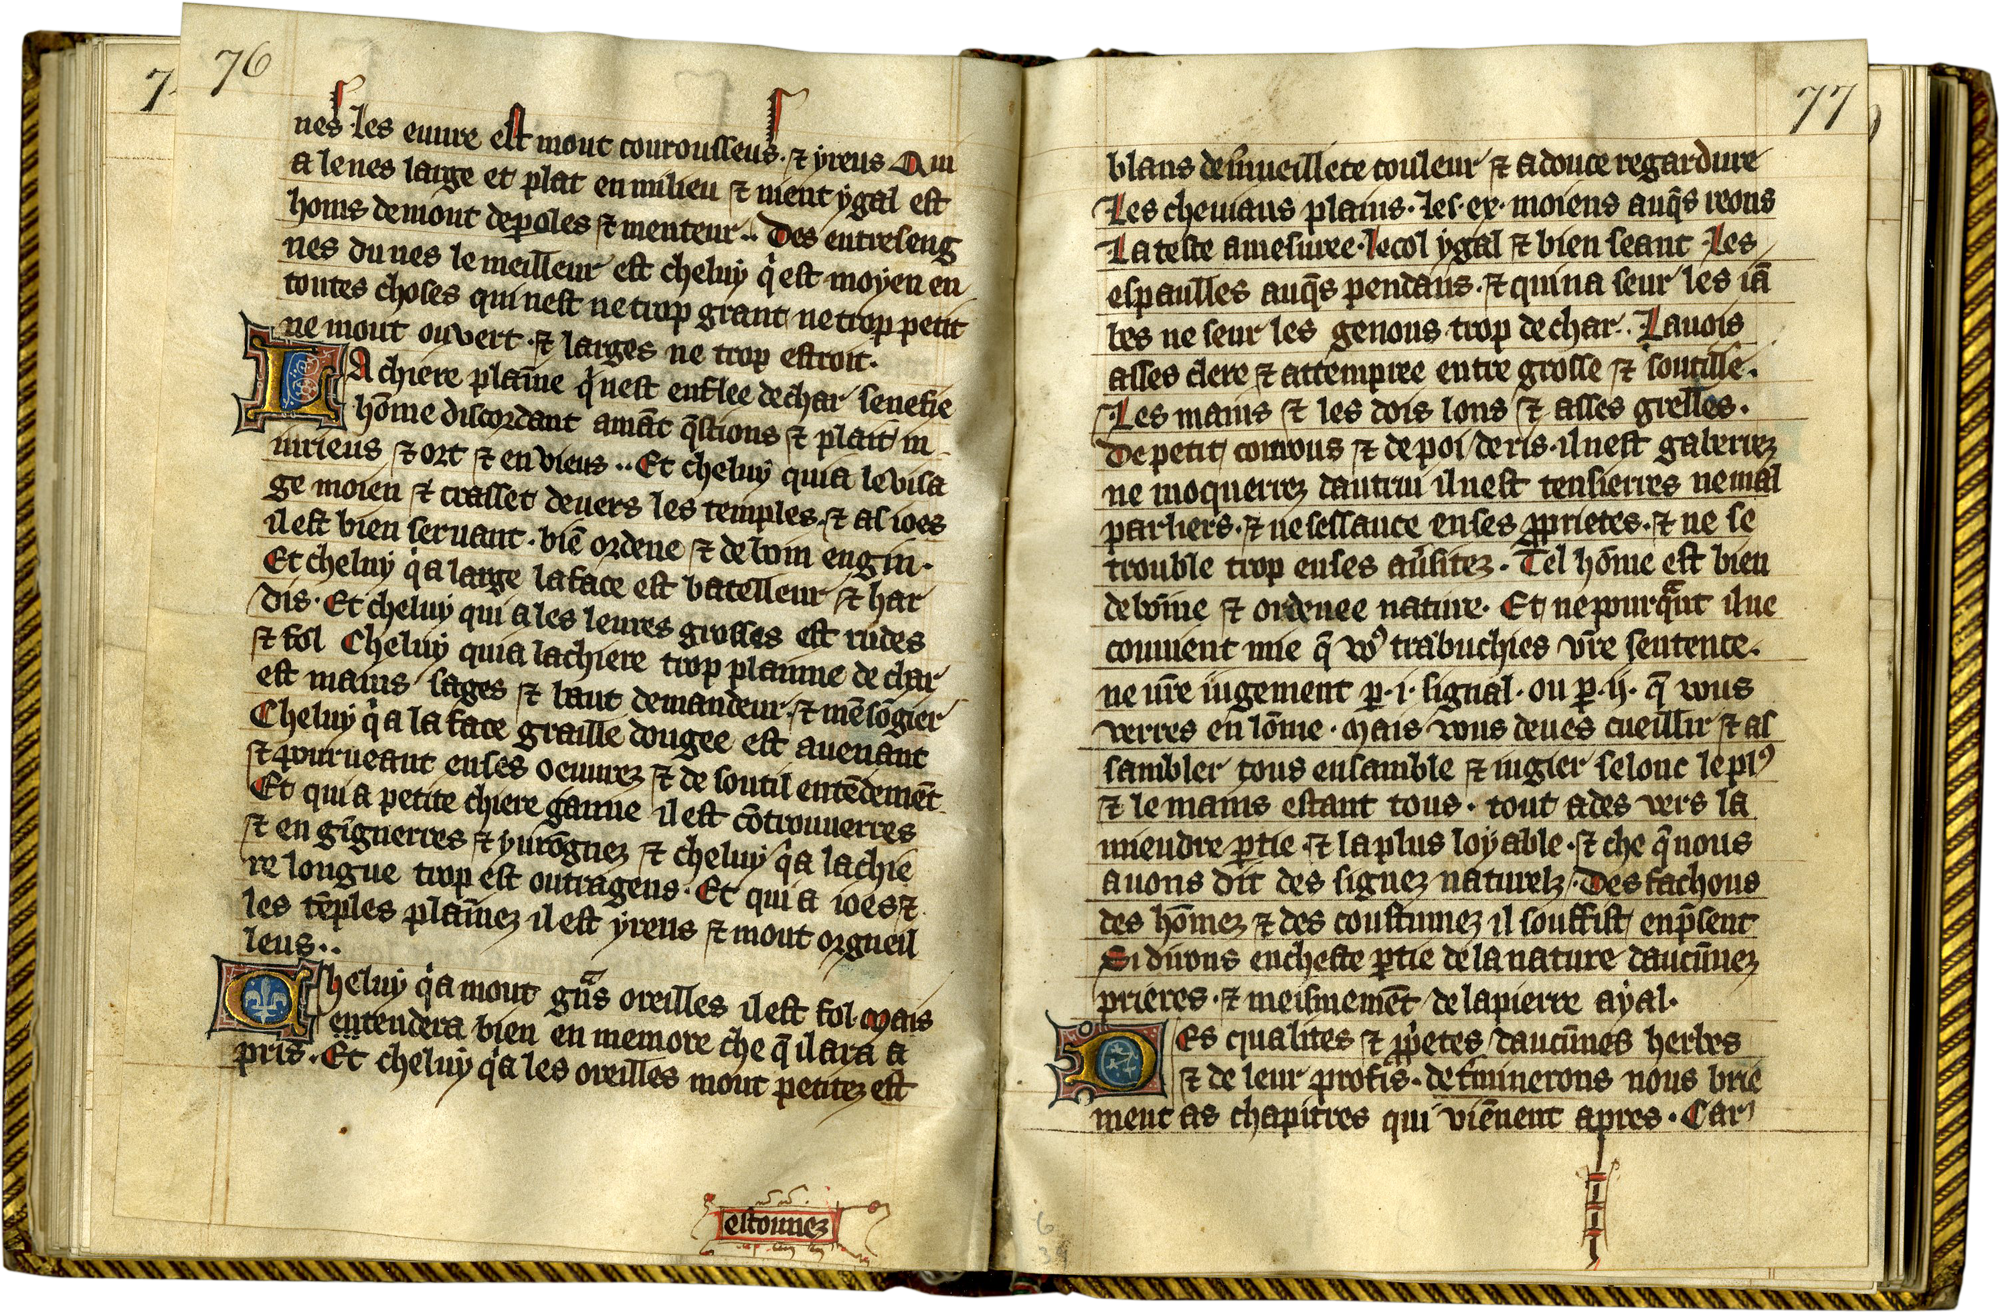 76
nes · les euure est mout courousseus · ⁊ yreus Qui
a le nes large et plat en milieu ⁊ nient ygal est
homs de mout de poles ⁊ menteur ·· Des entreseng
nes du nes le meilleur est cheluy q̉ est moyen en
toutes choses qui nest ne trop grant ne trop petit
ne mout ouvert · ⁊ larges ne trop estroit ·
LA chiere plaine q̉ nest enflee de char senefie
hōme discordant amāt q̄stions ⁊ plait in
iurieus ⁊ ort ⁊ en vieus ·· Et cheluy qui a le visa
ge moien ⁊ crasset devers les temples · ⁊ as ioes
il est bien seruant · biē ordene ⁊ de boin engin ·
Et cheluy q̉ a large la face est batelleur ⁊ har
dis · Et cheluy qui a les leures grosses est rudes
⁊ fol Cheluy qui a la chiere trop plainne de char
est mains sages ⁊ laut demandeur · ⁊ mēsōgier
Cheluy q̉ a la face graille dougee est auenant
⁊ pourueant en ses oeuurez ⁊ de soutil entēdemēt
Et qui a petite chiere gaune il est cōtrouuerres
⁊ en gīgnerres ⁊ yurōgnez ⁊ cheluy q̉ a la chie
re longue trop est outrageus · Et qui a ioes ⁊
les tēples plaīnez il est yreus ⁊ mout orgueil
leus ··
Cheluy q̉ a mout gn̄s oreilles il est fol · Mais
entendera bien en memore che q̄ il ara a
pris · Et cheluy q̉ a les oreilles mout petitez est
estoumez
77
blans de m̉ueillete couleur ⁊ a douce regardure
Les cheuiaus plains · les · ex · moiens auq̄s reons
La teste amesuree · le col ygal ⁊ bien seant · les
espaulles auq̄s pendans · ⁊ qui na seur les iā
bes ne seur les genous trop de char ·· La uois
asses clere ⁊ attempree entre grosse ⁊ soutille ·
Les mains ⁊ les dois lons ⁊ asses grelles ·
De petit couuous ⁊ de poi de ris · il nest gaberrez
ne moquerrez dautrui il nest tensierres ne mal
parliers · ⁊ ne sessauce en ses ꝓprietes · ⁊ ne se
trouble trop en ses au̓sitez · Tel hōme est bien
de bōine ⁊ ordenee nature · Et ne pourq̄nt il ne
conuient mie q̄ voꝰ trabuchies vr̄e sentence ·
ne ur̄e iugement ꝑ · i · signal · ou ꝑ · ij · q̄ vous
verres en lōme · Mais vous deues cueillir ⁊ as
sambler tous ensamble ⁊ iugier selonc le plꝰ
⁊ le mains estant tous · tout ades vers la
mieudre ꝑtie · ⁊ la plus loyable · ⁊ che q̄ nous
auons dit des signez naturelz · Des fachons
des hōmez ⁊ des coustumez il souffist en p̄sent
Si dirons en cheste ꝑtie de la nature daucūnez
prieres · ⁊ meismemēt de la pierre ayal ·
DEs qualites ⁊ ꝓp̓etes daucūnes herbes
⁊ de leur profis · det̉minerons nous brie
ment as chapitres qui viēnent apres · Car
6